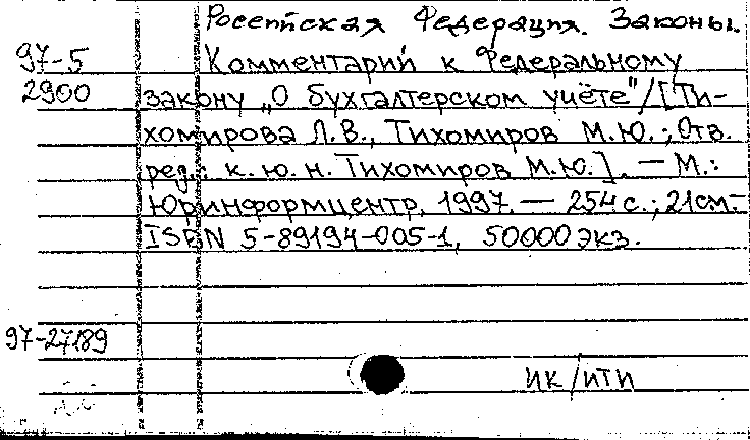 Российская Федерация. Законы.
97-5 Комментарий к Федеральному
2900 закону „О бухгалтерском учёте"/[Ти-
хомирова Л.В., Тихомиров М.Ю.; Отв.
ред.: к.ю.н. Тихомиров М.Ю.]. — М.:
Юринформцентр, 1997. — 254 с.; 21см.-
ISBN 5-89194-005-1, 50000 экз.
97-27189
ИК/ИТИ